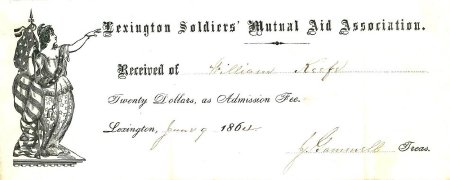 Lexington Soldiers' Mutual Aid Association.
Received of William Keefe
Twenty Dollars, as Admission Fee.
Lexington, June 9 1864
J. Gammell Treas.